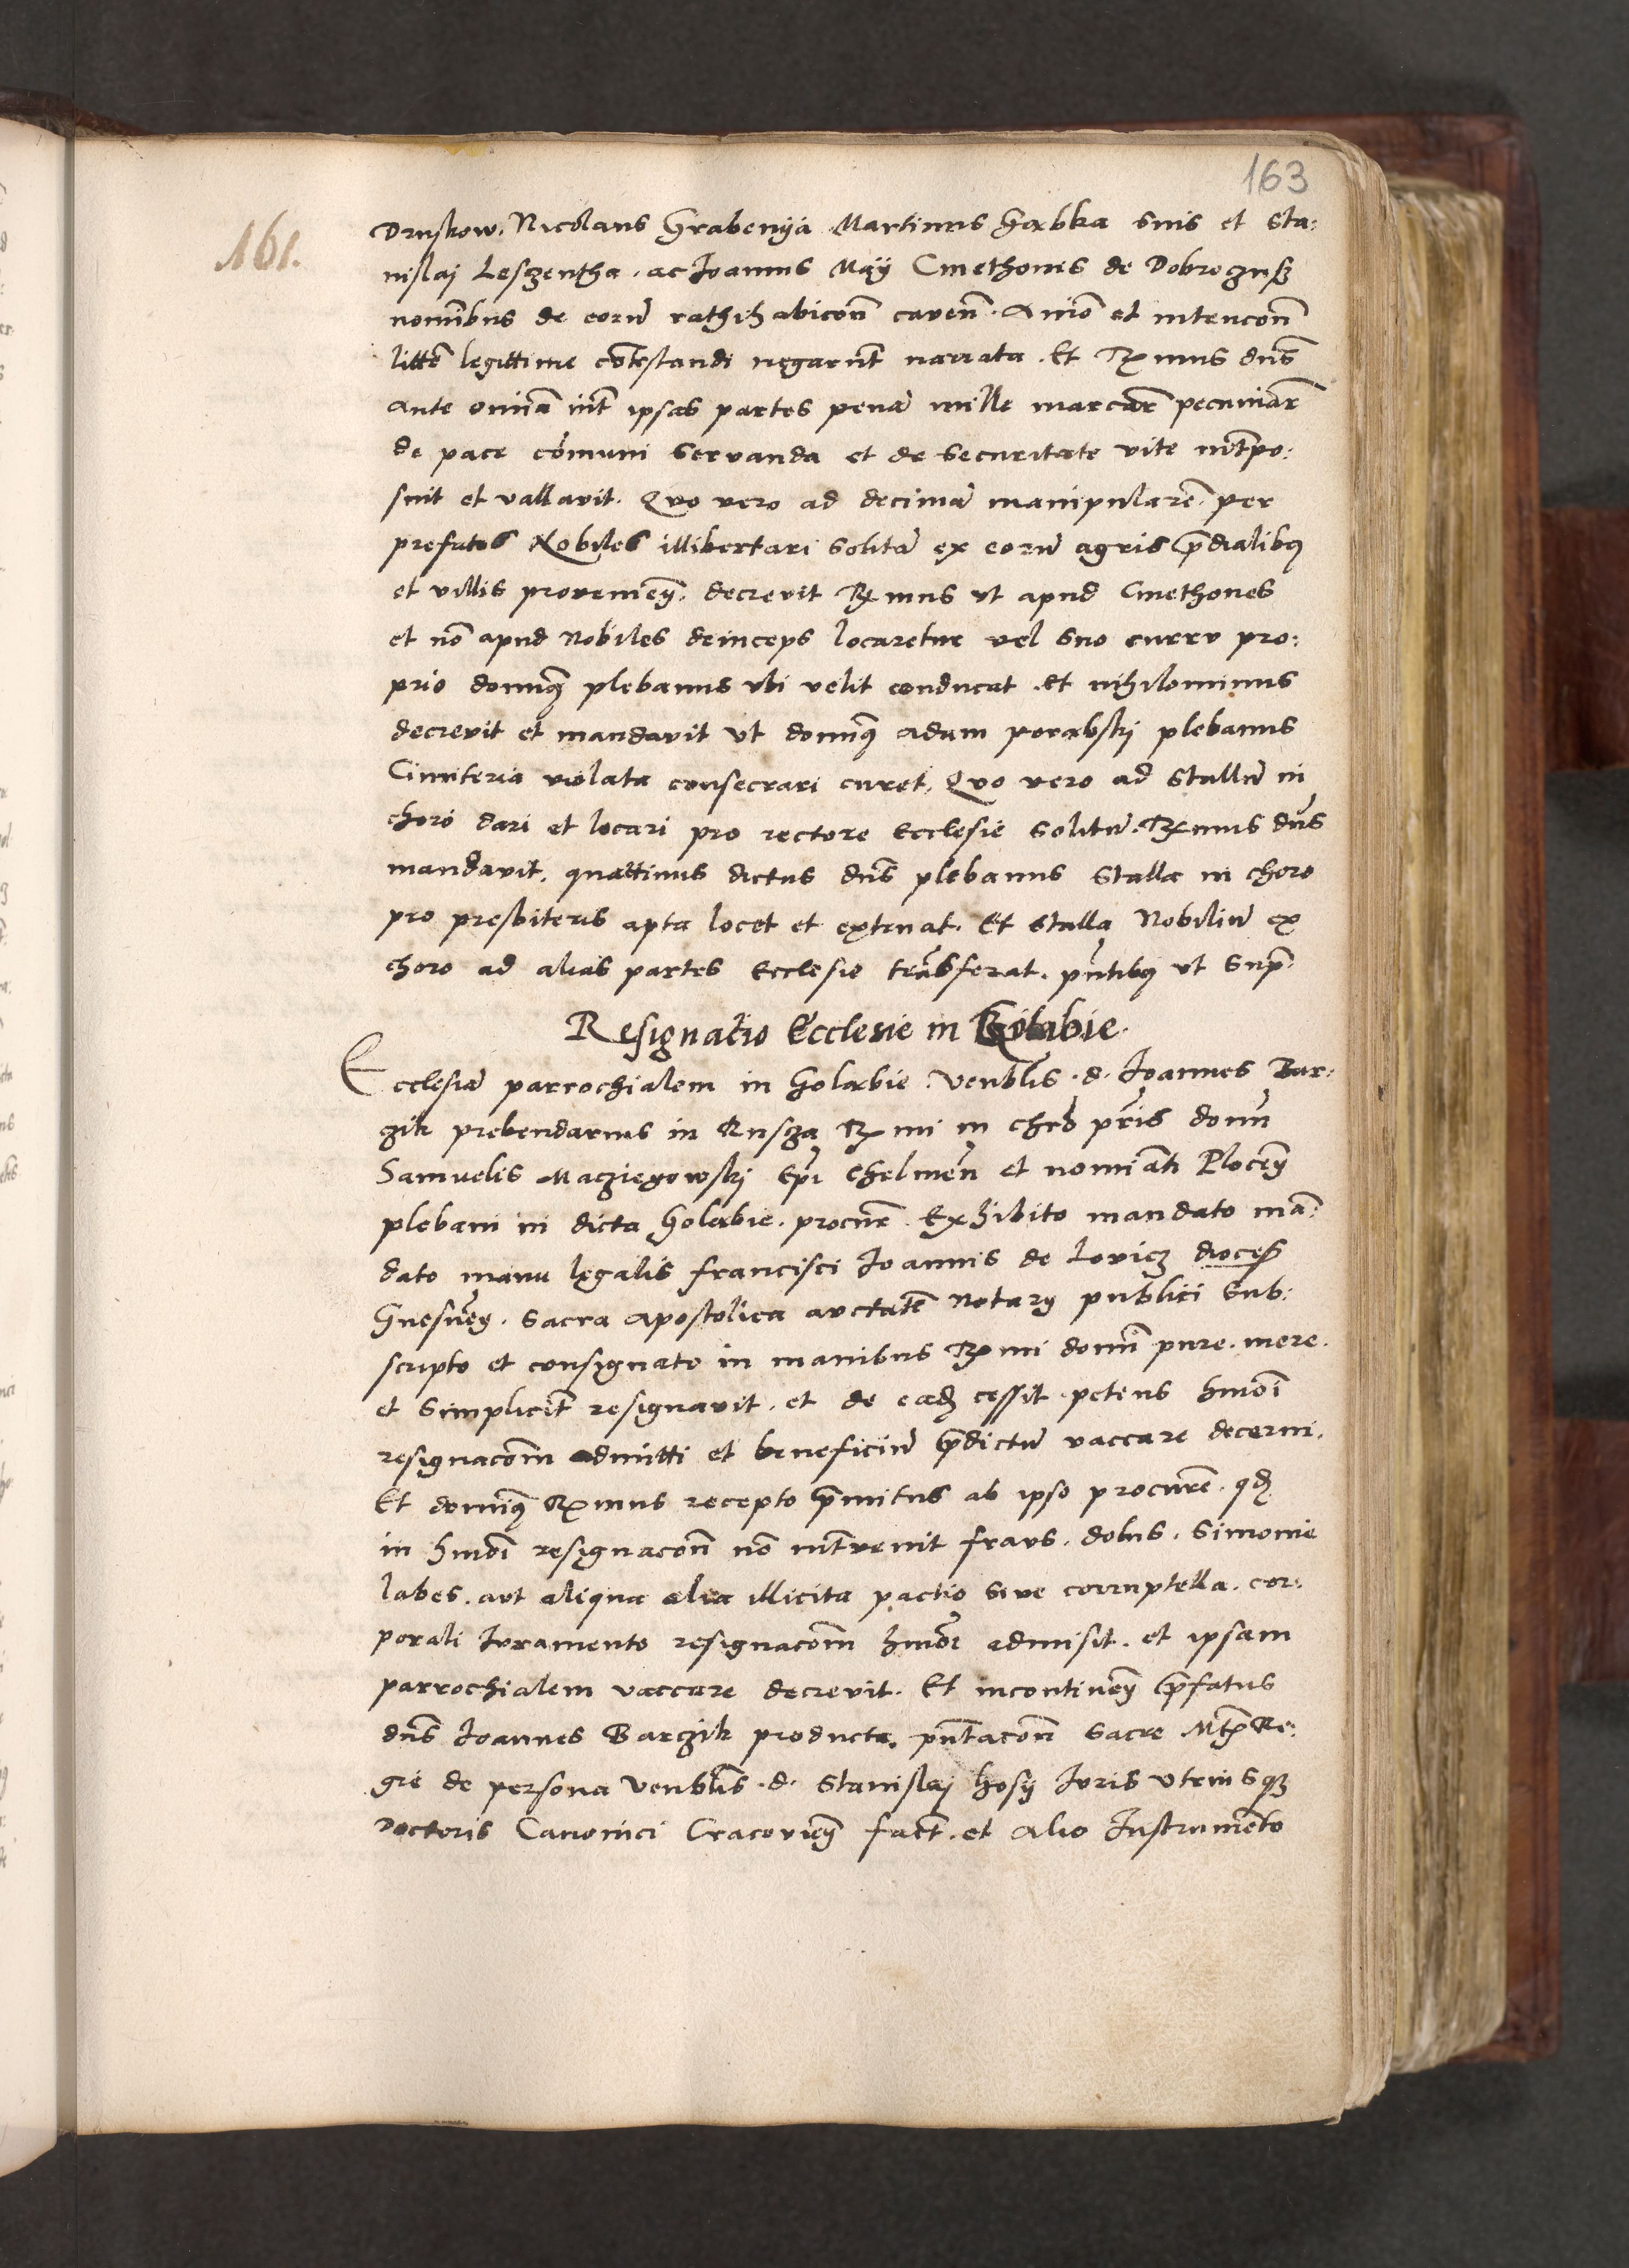 163
161.
Druskow. Nicolaus Grabenya Martinus Gabka suis et Sta:
nislaj Leszentha. ac Joannis Maÿ Cmethones de Dobrocżuss
nomībus de eorū rathihabicoñ caveñ. Aniō et intencoñ
littē legittime cōtestandi negarūt narrata. Et Rxmus dns̄
ante omīa int̄ ipsas partes penā mille marcar̄ pecuniar̄
de pace cōmuni servanda et de securitate vite int̄po:
suit et vallavit. Quo vero ad decimā manipularē. per
prefatos Nobiles illibertari solitā ex eorū agris p̄dialibꝫ
et villis provenieñ. decrevit Rxmus vt apud Cmethones
et nō apud Nobiles deinceps locaretur vel suo curru pro:
prio domīꝫ plebanus vbi velit conducat. et nihilominus
decrevit et mandavit vt domīꝫ adam porabskj plebanus
Cimiteria violata consecrari curet. Quo vero ad Stallū in
choro dari et locari pro rectore Ecclesie solitū. Rxmus dns̄
mandavit. quattinus dictus dns̄ plebanus Stalla in choro
pro presbiteris apta locet et extruat. Et stalla Nobiliū ex
choro ad alias partes Ecclesie trāsferat. pn̄tibꝫ vt sup̄.
Resignatio Ecclesie in Golabie.
Ecclesiā parrochialem in Golabie. Venblis̄. d. Joannes Bar:
zik prebendarius in Rusza Rxmi in chrō pr̄is domī
Samuelis Macziegowskj Ep̄i Chelmeñ et nomīati Ploceñ
plebani in dicta Golabie. procur̄. Exhibito mandato mā:
dato manu legalis Francisci Joannis de Lovicz diocē̄s
Gnesneñ. Sacra Apostolica avctatē Notarÿ publici Sub:
scripto et consignato in manibus Rxmi domī pure. mere.
et simplicit̄ resignavit. et de eadꝫ cessit petens hmōi
resignacōm admitti et beneficiū p̄dictū vaccare decerni.
Et domīꝫ Rxmus recepto p̄mitus ab ipso procurē. qdꝫ
in hmōi resignacoñ nō int̄venit fraus. dolus. Simonie
labes. avt aliqua alia illicita pactio sive corruptella. cor:
porali Ivramento resignacōm hmōi admisit. et ipsam
parrochialem vaccare decrevit. Et incontineñ p̄fatus
dns̄ Joannes Barzik producta. pn̄tacoñ Sacre Mt̄x Re:
gie de persona Venblis̄. d. Stanislaj Hosÿ Ivris Vtriusqꝫ
Doctoris Canonici Cracovieñ fact̄. et alio Instrumēto